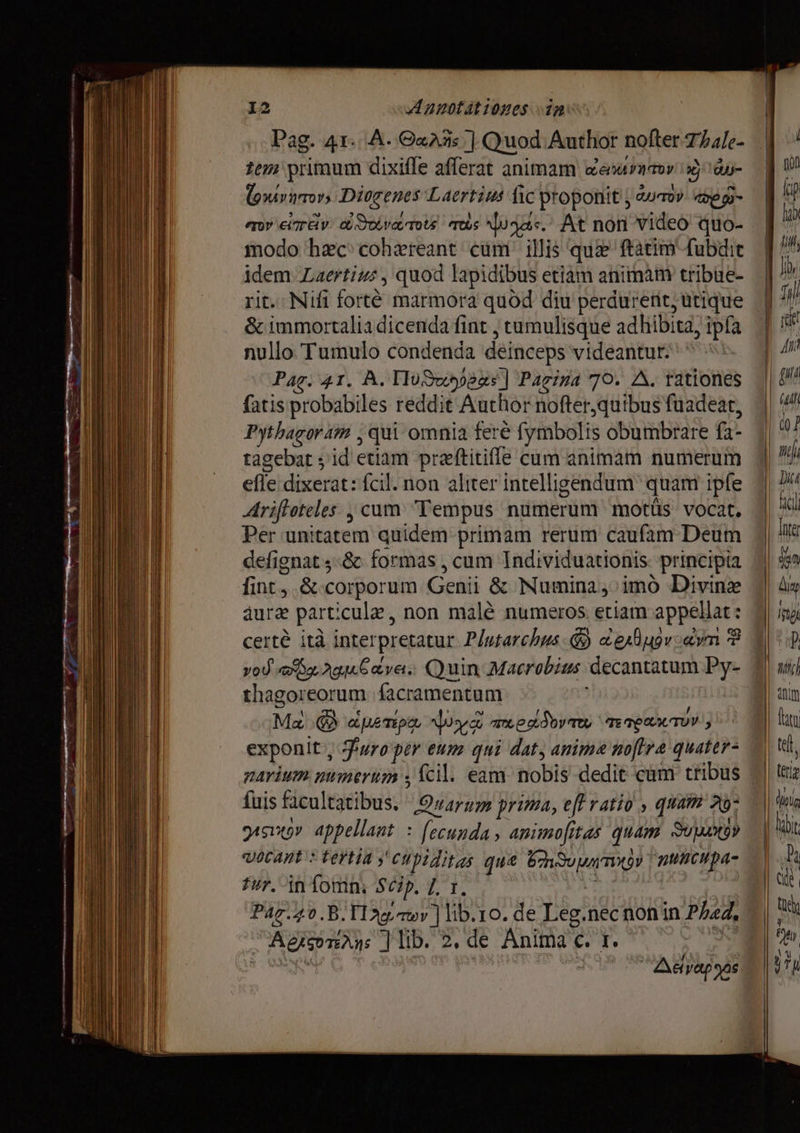 12 Annotationes in
Pag. 41. A. Θαλῆς ] Quod Author noſter Thale-
tem primum dixiſſe aſſerat animam ἀεικίνητον ἢ αὐ-
τοκίνητον, Diogenes Laertius ſic proponit, αὐτὸν πρῶ-
τον εἰπεῖν ἀθανάτους τὰς ψυχάς. At non video quo-
modo hæc cohæreant cum illis quæ ſtatim ſubdit
idem Laertius, quod lapidibus etiam animam tribue-
rit. Niſi fortè marmora quòd diu perdurent, utique
& immortalia dicenda ſint, tumulisque adhibita, ipſa
nullo Tumulo condenda deinceps videantur.
Pag. 41. A. Πυθαγόρας] Pagina 70. A. rationes
ſatis probabiles reddit Author noſter, quibus ſuadeat,
Pythagoram, qui omnia ferè ſymbolis obumbrare ſa-
tagebat; id etiam præſtitiſſe cum animam numerum
eſſe dixerat: ſcil. non aliter intelligendum quam ipſe
Ariſtoteles, cum Tempus numerum motûs vocat.
Per unitatem quidem primam rerum cauſam Deum
deſignat; & formas, cum Individuationis principia
ſint, & corporum Genii & Numina, imò Divinæ
auræ particulæ, non malè numeros etiam appellat:
certè ità interpretatur Plutarchus τὸν ἀριθμὸν ἀντὶ τοῦ
νοῦ παραλαμβάνει. Quin Macrobius decantatum Py-
thagoreorum ſacramentum
Μὰ τὸν ἁμετέρᾳ ψυχᾷ παραδόντα τετρακτύν,
exponit, Juro per eum qui dat, animæ noſtræ quater-
narium numerum; ſcil. eam nobis dedit cum tribus
ſuis facultatibus. Quarum prima, eſt ratio, quam λο-
γιστικὸν appellant: ſecunda, animoſitas quam θυμικὸν
vocant: tertia, cupiditas quæ ἐπιθυμητικὸν nuncupa-
tur. in ſomn. Scip. l. 1.
Pag. 40. B. Πλάτων] lib. 10. de Leg. nec non in Phæd.
Ἀριστοτέλης ] lib. 2. de Anima c. 1.